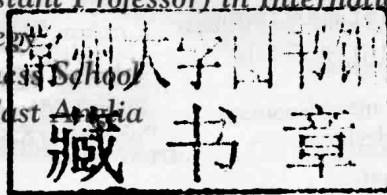 stant Professor) in Internati
egy
ness School
East Anglia
州大学
藏书章